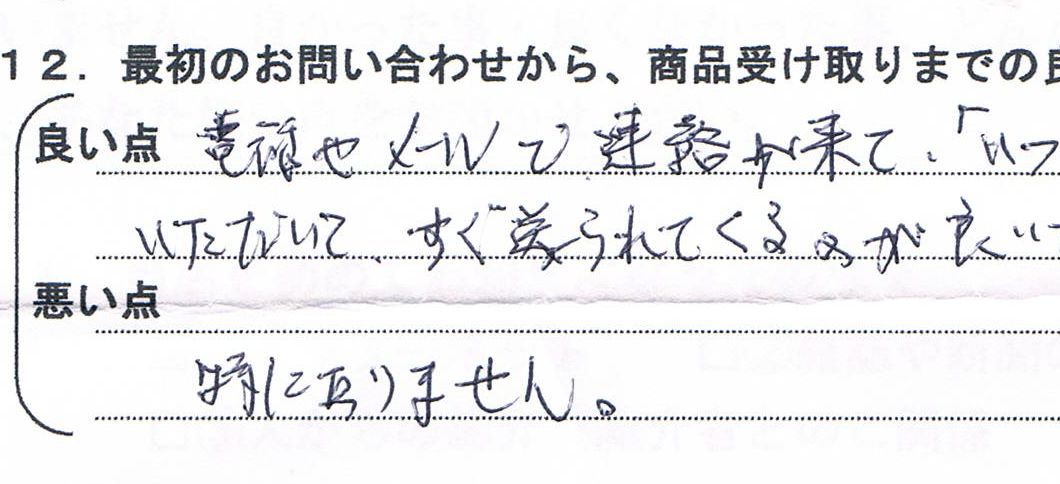 12．最初のお問い合わせから、商品受け取りまでの良
良い点 電話やメールで連絡が来て、「いつ
いただいて、すぐ送られてくるのが良い
悪い点
特に有りません。